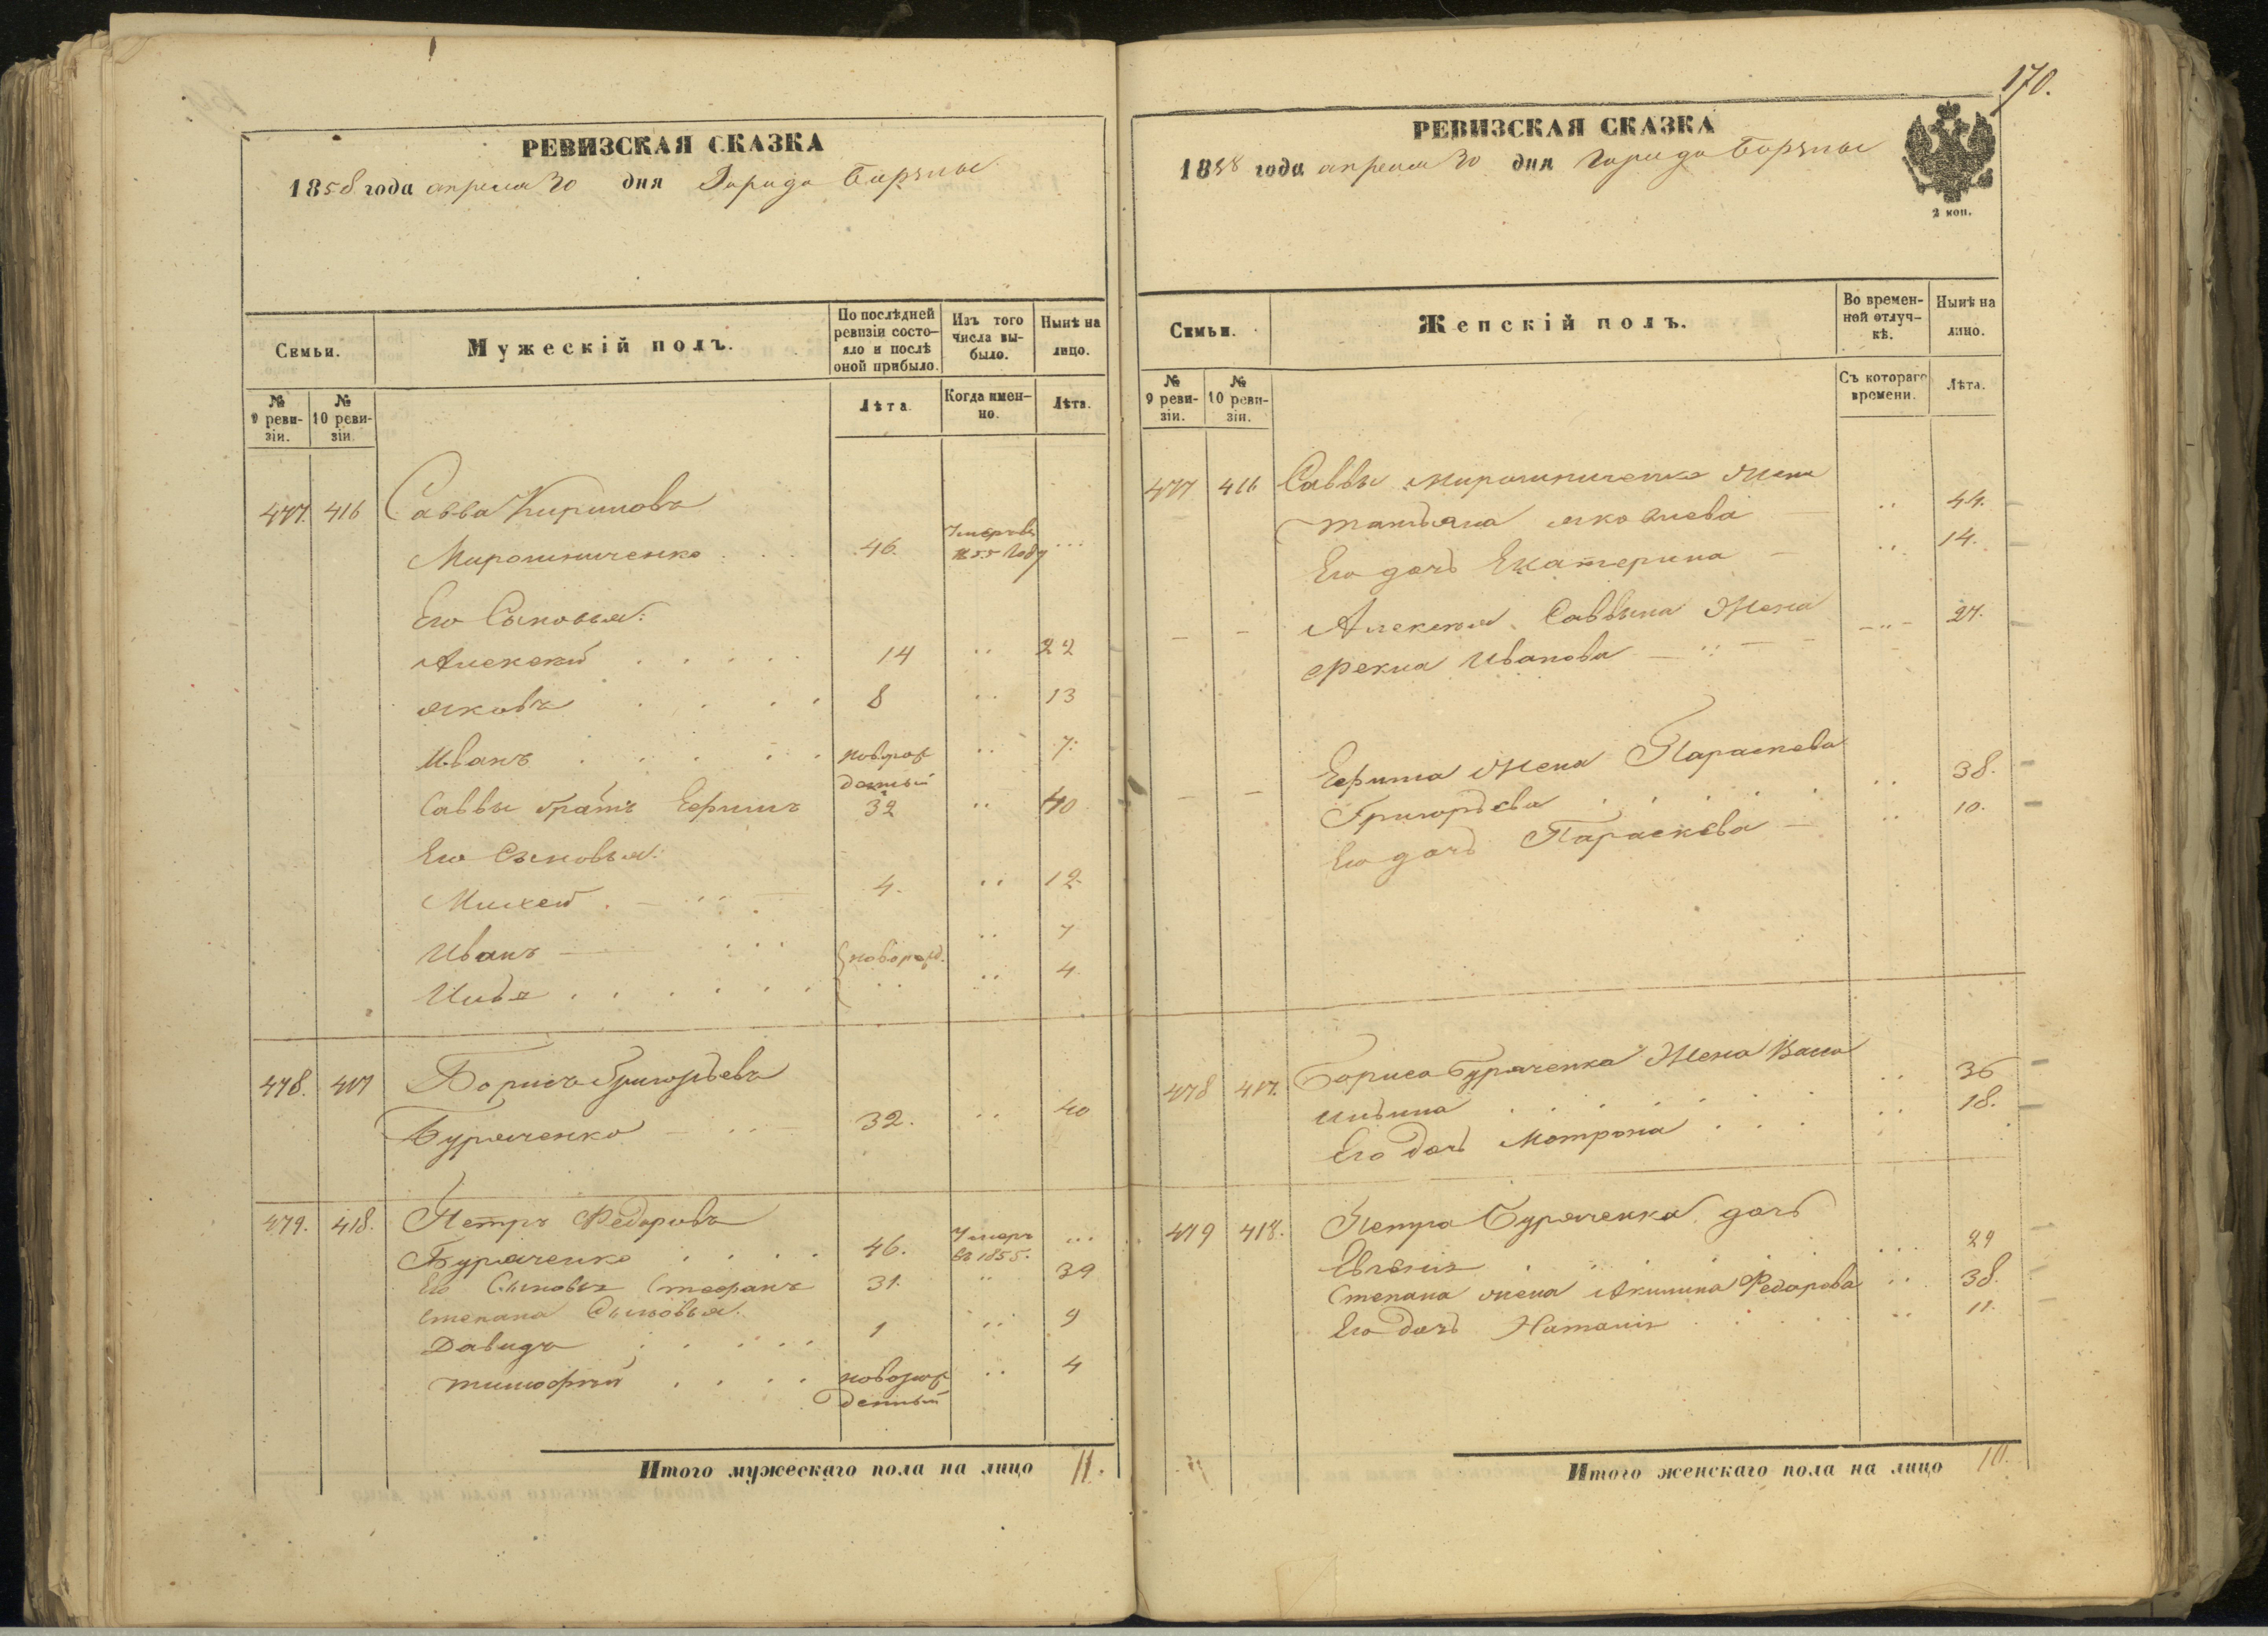 РЕВИЗСКАЯ СКАЗКА
1858 года апреля 30 дня Города Борзны
Семьи.
Мужескій полъ.
По послѣдней ревизіи состо-
яло и послѣ оной прибыло.
Изъ того числа вы-
было.
Нынѣ на лицо.
№ 9 реви-
зіи.
№ 10 реви-
зіи
Лѣта.
Когда имен-
но.
Лѣта.
477. 416 Савва Кириловъ
Мирошниченко . . . 46. Умеръ въ 1855 Году ...
Его Сыновья:
Алексѣй . . . . . 14 .. 22
Яковъ . . . . 8 .. 13
Иванъ . . . . . новорож
денный .. 7.
Саввы братъ Ефимъ 32 .. 40
Его Сыновья:
Михей . 4. .. 12.
Иванъ новорожд. .. 7
Илья . . . . . . .. .. 4
478. 417 Борисъ Григорьевъ
Буряченко 32. .. 40
479. 418. Петръ Федоровъ
Буряченко . . . . 46. Умеръ въ 1855. ...
Его Сыновья Стефанъ 31. .. 39
Степана Сыновья:
Давидъ . . . . . 1 .. 9
Тимофей . . . . новорож
денный .. 4
Итого мужескаго пола на лицо 11.
170.
РЕВИЗСКАЯ СКАЗКА
1858 года апреля 30 дня Города Борзны
2 коп.
Семьи.
Женскій полъ.
Во времен-
ной отлуч-
кѣ.
Нынѣ на лицо.
№ 9 реви-
зіи.
№ 10 реви-
зіи.
Съ котораго времени.
Лѣта.
477 416 Саввы Мирошниченко Жена
Татьяна Яковлева .. 44.
Его дочь Екатерина .. 14.
Алексея Саввина Жена
Фекла Иванова .. 27.
Ефима Жена Параскева
Григорьева . . . . . .. 38.
Его дочь Параскева .. 10.
478 417. Бориса Буряченка Жена
Ильина . . . . . . . .. 36
Его дочь Мотрона . . . .. 18.
479 418. Петра Буряченка дочь
Евгенія . . . . . ... 29
Степана жена Акилина Федорова .. 38.
Его дочь Наталія . . . . .. 11.
Итого женскаго пола на лицо 10.